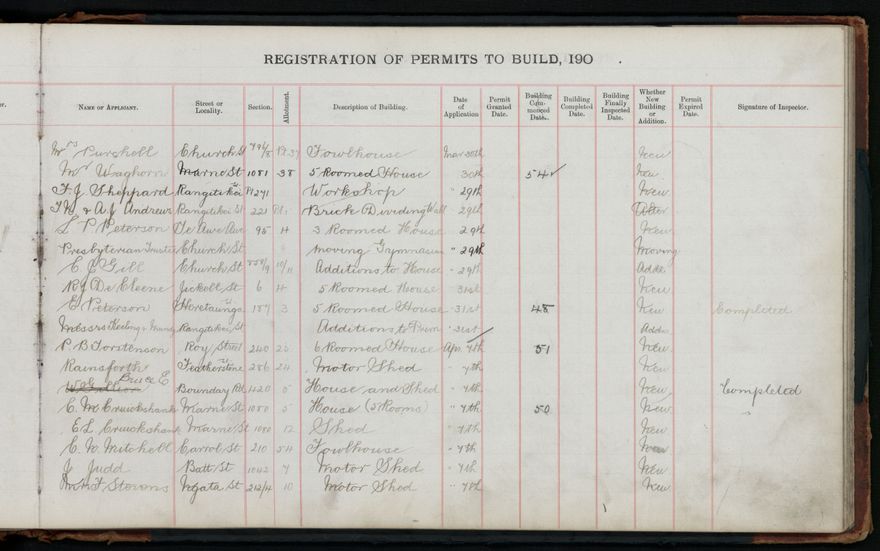 REGISTRATION OF PERMITS TO BUILD, 190 .
Name of Applicant. Street or Locality. Section. Allotment. Description of Building. Date of Application Permit Granted Date. Building Com-menced Date. Building Completed Date. Building Finally Inspected Date. Whether New Building or Addition. Permit Expired Date. Signature of Inspector.
Mrs Purshell Church St Pt 37 Fowlhouse Mar 30th New
Mr Waghorn Marne St 1081 38 5 Roomed House 30th 54 New
F J Sheppard Rangitikei St 1241 Workshop " 29th New
F W & A J Andrews Rangitikei St 221 Brick Dividing Wall 29th
L P Peterson De Awe Ave 95 4 3 Roomed House 29th New
Presbyterian Trustees Church St moving Gymnasium " 29th Moving
E J Gill Church St 858/9 10/11 Additions to House " 29th Add.
R J De Cleene Jickell St 6 4 5 Roomed House 31st New
E Peterson Heretaunga St 187 3 5 Roomed House " 31st 48 New Completed
Messrs Keeling & Mundy Rangitikei St Additions to Prem " 31st Addn
P B Torstenson Roy Street 240 25 6 Roomed House Apr. 7th 51 New
Rainsforth Featherstone St 286 24 Motor Shed " 7th New
Bruce E Boundary Rd 1420 5 House and Shed " 7th New Completed
C. M Cruickshank Marne St 1080 5 House (5 Rooms) " 7th 50 New "
E L Cruickshank Marne St 1080 12 Shed " 7th New
C. W. Mitchell Carrol St 210 54 Fowlhouse " 7th New
J Judd Batt St 1042 7 Motor Shed " 7th New
F Stevens Ngata St 212/4 10 Motor Shed " 7th New